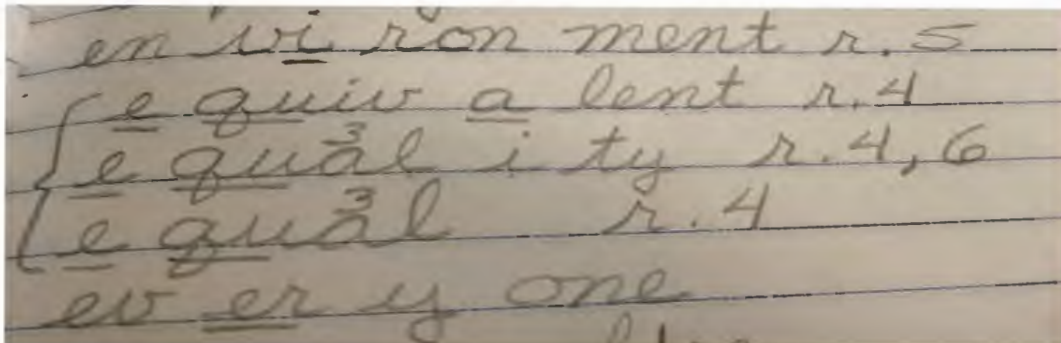 en vi ron ment r. 5
e quiv a lent r. 4
e qual i ty r. 4, 6
e qual r. 4
ev er y one